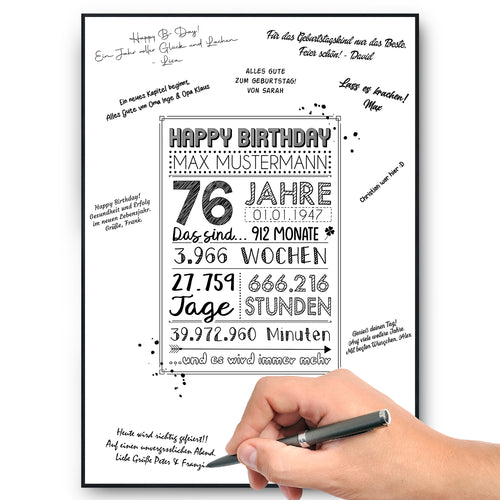 Happy B-Day!
Ein Jahr voller Glück und Lachen
- Lisa
Für das Geburtstagskind nur das Beste.
Feier schön! - David
ALLES GUTE
ZUM GEBURTSTAG!
VON SARAH
Lass es krachen!
Max
Ein neues Kapitel beginnt,
Alles Gute von Oma Inge & Opa Klaus
Christian war hier :D
Happy Birthday!
Gesundheit und Erfolg
im neuen Lebensjahr.
Grüße, Frank.
HAPPY BIRTHDAY
MAX MUSTERMANN
76 JAHRE
01.01.1947
Das sind... 912 MONATE
3.966 WOCHEN
27.759 Tage
666.216 STUNDEN
39.972.960 Minuten
...und es wird immer mehr
Genieß deinen Tag!
Auf viele weitere Jahre.
Mit besten Wünschen, Alex
Heute wird richtig gefeiert!!
Auf einen unvergesslichen Abend.
Liebe Grüße Peter & Franzi